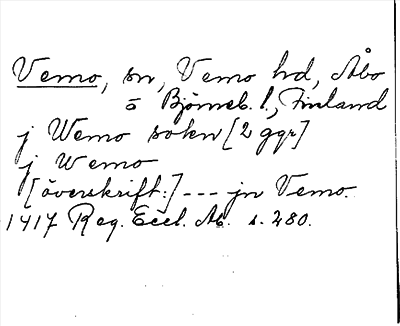 Vemo, sn, Vemo hd, Åbo
o Björneb. l., Finland
j Wemo sokn [2 ggr]
j Wemo
[överskrift:] --- jn Vemo.
1417 Reg. Eccl. Ab. s. 280.